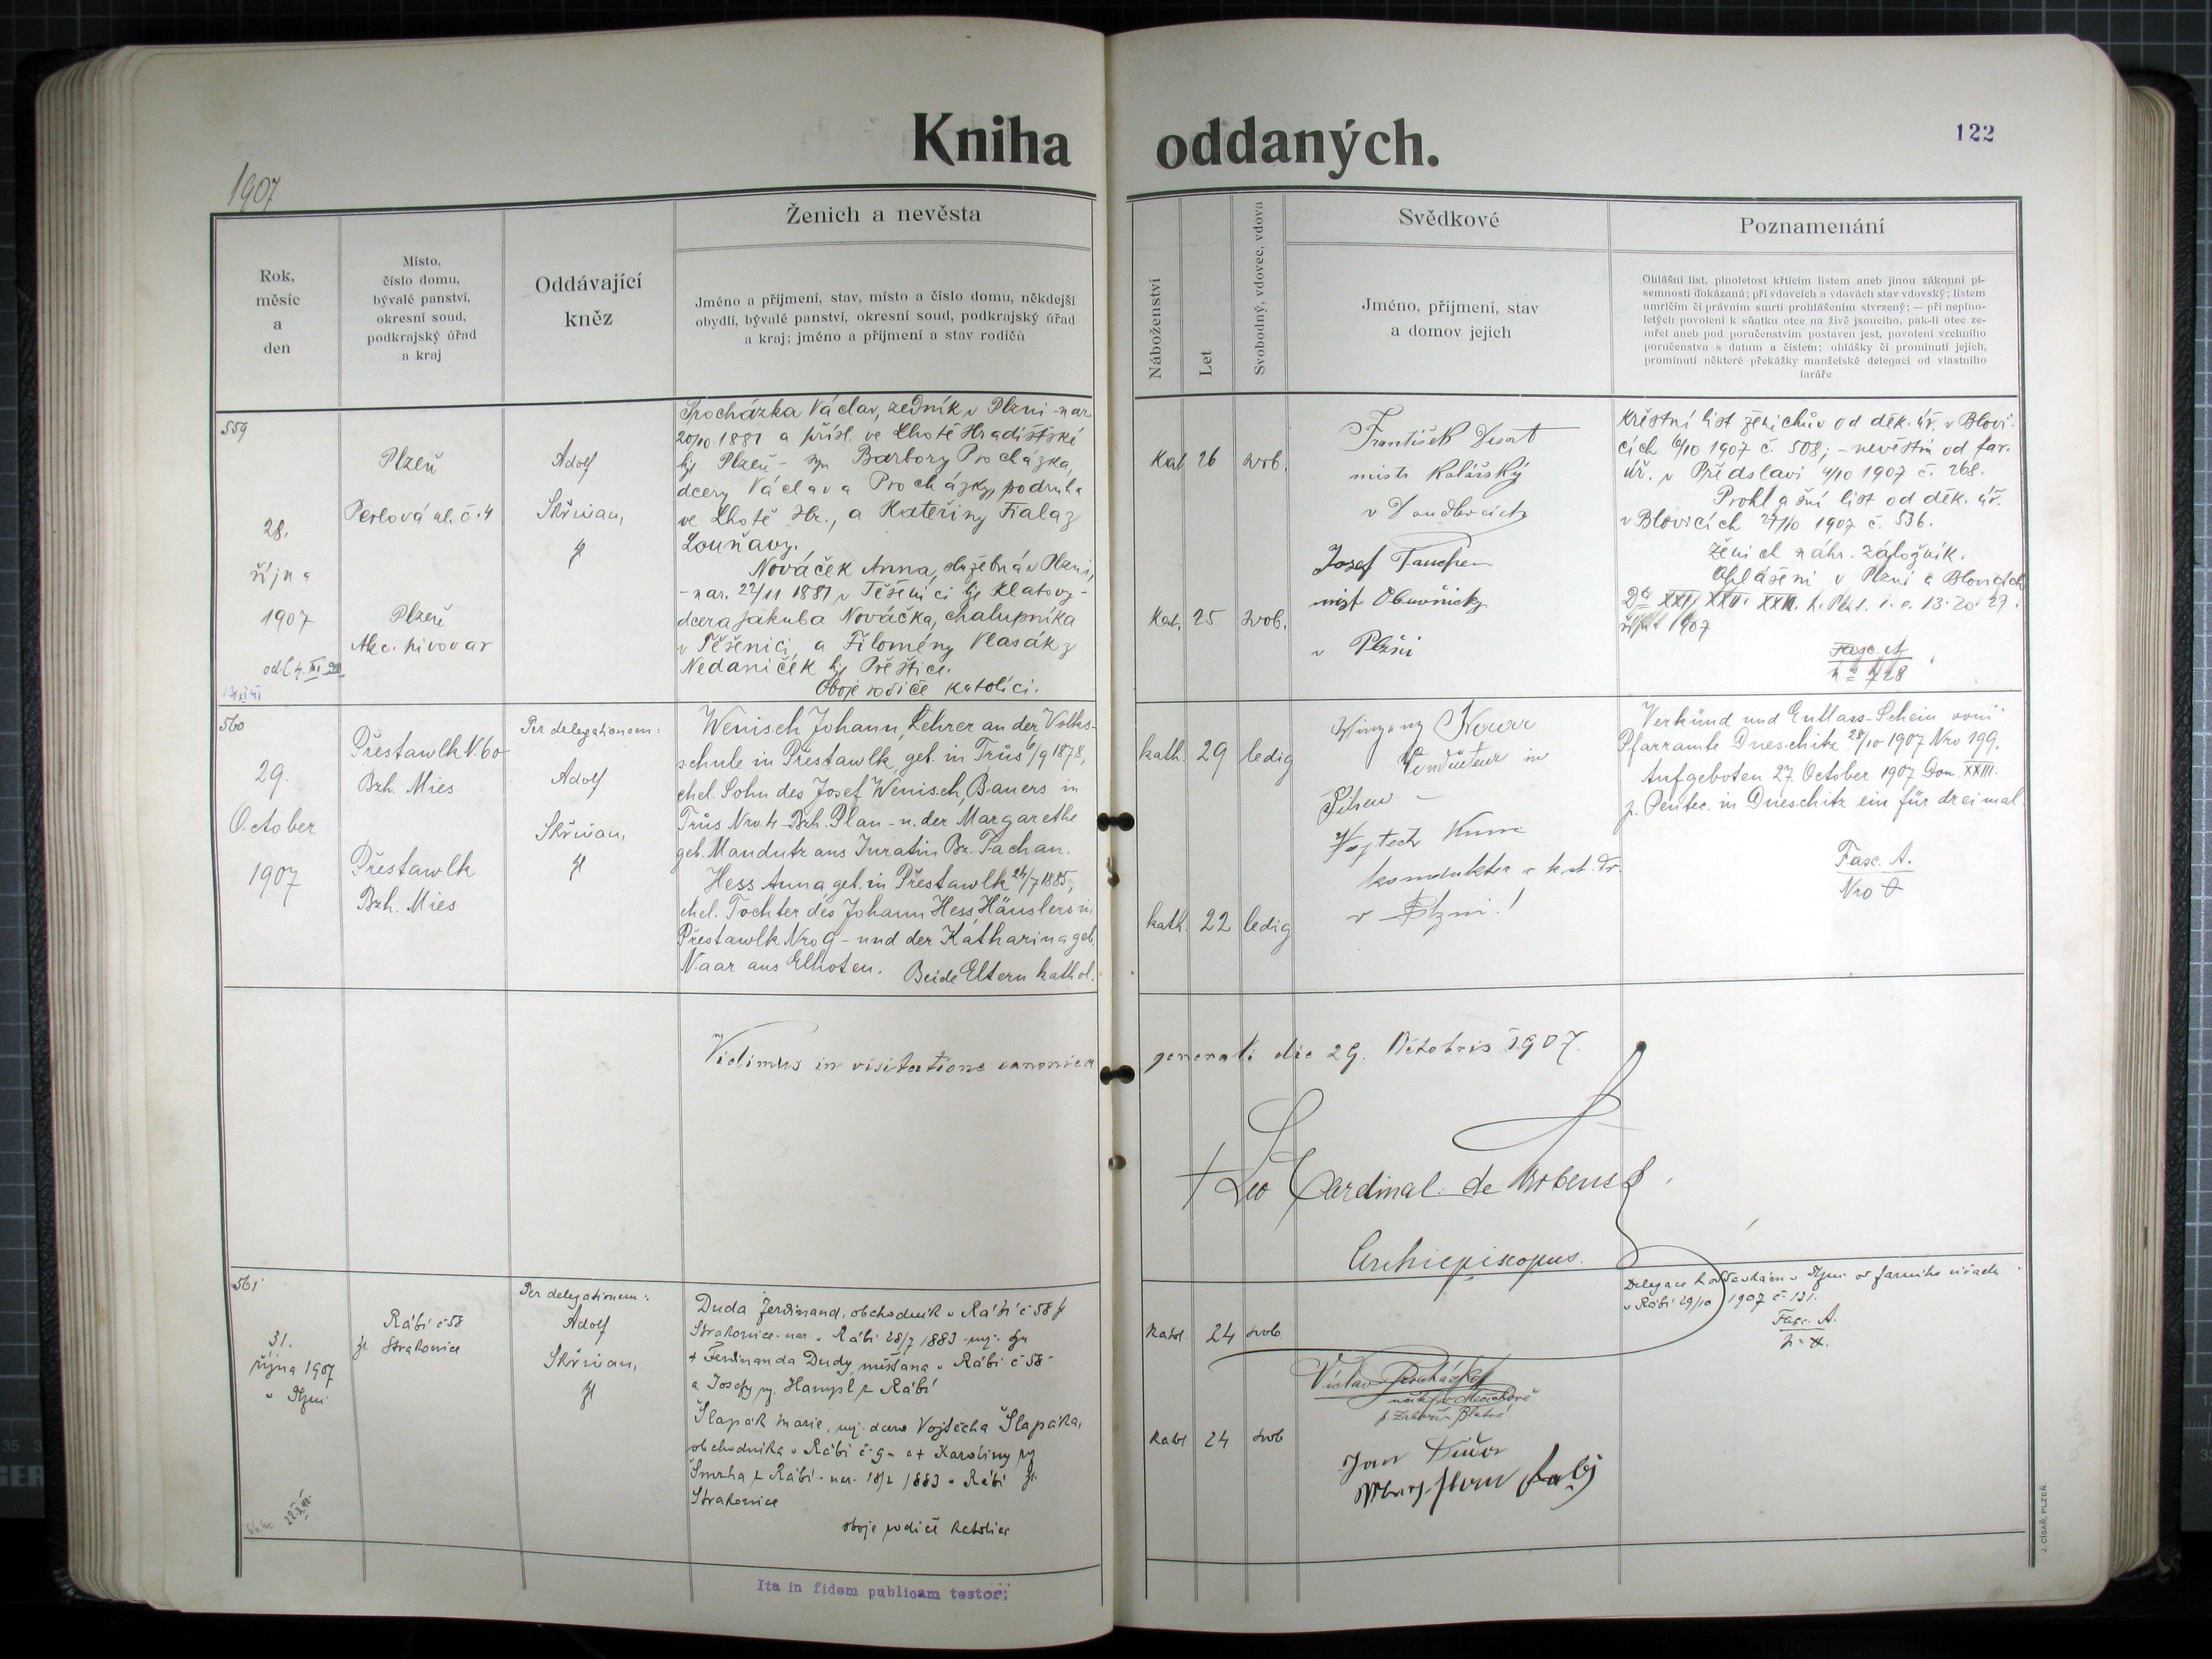 Kniha oddaných.
122
1907
Rok,
měsíc
a
den
Místo,
číslo domu,
bývalé panství,
okresní soud,
podkrajský úřad
a kraj
Oddávající
kněz
Ženich a nevěsta
Jméno a příjmení, stav, místo a číslo domu, někdejší
obydlí, bývalé panství, okresní soud, podkrajský úřad
a kraj; jméno a příjmení a stav rodičů
Náboženství
Let
Svobodný, vdovec, vdova
Svědkové
Jméno, příjmení, stav
a domov jejich
Poznamenání
Ohlášní list, plnoletost křticím listem aneb jinou zákonní pí-
semností dokázaná; při vdovcích a vdovách stav vdovský; listem
umrlčím či právním smrti prohlášením stvrzený; — při neplno-
letých povolení k sňatku otce na živě jsoucího, pak-li otec ze-
mřel aneb pod poručenstvím postaven jest, povolení vrchního
poručenstva s datum a číslem; ohlášky či prominutí jejich,
prominutí některé překážky manželské delegací od vlastního
faráře
559
28.
října
1907
Plzeň
Perlová ul. č. 4
Plzeň
Akc. pivovar
Adolf
Skřivan,
Procházka Václav, zedník v Plzni - nar
20/10 1881 a přísl. ve Lhotě Hradišťské
hj Plzeň - syn Barbory Procházka,
dcery Václava Procházky, podruha
ve Lhotě Hr., a Kateřiny Fiala z
Louňavy.
Nováček Anna, služebná v Plzni,
- nar. 22/11 1881 v Těšenici hj Klatovy -
dcera Jakuba Nováčka, chalupníka
v Těšenici, a Filomény Vlasák z
Nedaniček hj Přeštice.
Oboje rodiče katolíci.
Kat. 26 svob.
Kat. 25 svob.
František
mistr Kolářský
v
Josef Tauchen
mist Obuvnický
v Plzni
Křestní list ženichův od děk. úř. v Blovi-
cích 6/10 1907 č. 508; - nevěstin od far.
úř. v Předslavi 4/10 1907 č. 268.
Prohlašní list od děk. úř.
v Blovicích 27/10 1907 č. 536.
Ženich náhr. záložník.
Ohlášeni v Plzni a Blovicích
XXI. XXII. XXIII. p. Pent. i. e. 13. 20. 27.
října 1907
Fasc. A
No 728
560
29.
October
1907
Přestawlk N. 60
Bzh. Mies
Přestawlk
Bzh. Mies
Per delegationem:
Adolf
Skřivan,
Wenisch Johann, Lehrer an der Volks-
schule in Přestawlk, geb. in Trüs 6/9 1878,
ehel. Sohn des Josef Wenisch, Bauers in
Trüs Nro. 4 Bzh. Plan - u. der Margarethe
geb. Mandutz aus Juratin Bz. Tachau.
Hess Anna geb. in Přestawlk 24/7 1885,
ehel. Tochter des Johann Hess, Häuslers in
Přestawlk Nro 9 - und der Katharina geb.
Naar aus Elhoten. Beide Eltern kathol.
kath. 29 ledig
kath. 22 ledig
Kondukteur in
Pilsen
Vojtěch
kondukter c. k. st. dr.
v Plzni!
Verkünd und Entlass-Schein vom
Pfarramte Dneschitz 28/10 1907 Nro 199.
Aufgeboten 27. October 1907 Dom. XXIII.
p. Pentec. in Dneschitz ein für dreimal.
Fasc. A.
Nro
Vidimus in visitatione canonica generali die 29. Octobris 1907.
† Leo Cardinal de Skrbenský
Archiepiscopus.
561
31.
října 1907
v Plzni
Rábí č 58
hj. Strakonice
Per delegationem:
Adolf
Skřivan,
Duda Ferdinand, obchodník v Rábí č 58 hj
Strakonice nar. v Rábí 28/7 1883 mj. syn
† Ferdinanda Dudy, měšťana v Rábí č 58
a Josefy roz. Hampl z Rábí
Šlapák Marie, mj. dcera Vojtěcha Šlapáka,
obchodníka v Rábí č. 9 - a † Karoliny roz
Smrha z Rábí - nar. 18/2 1883 v Rábí hj.
Strakonice
oboje rodiče katolíci
Katol 24 svob
Katol 24 svob
Václav Procházka
Jan Duda
Delegace k oddavkám v Plzni od farního úřadu
v Rábí 29/10 1907 č. 131.
Fasc. A.
Ita in fidem publicam testor:
J. CÍSAŘ, PLZEŇ.